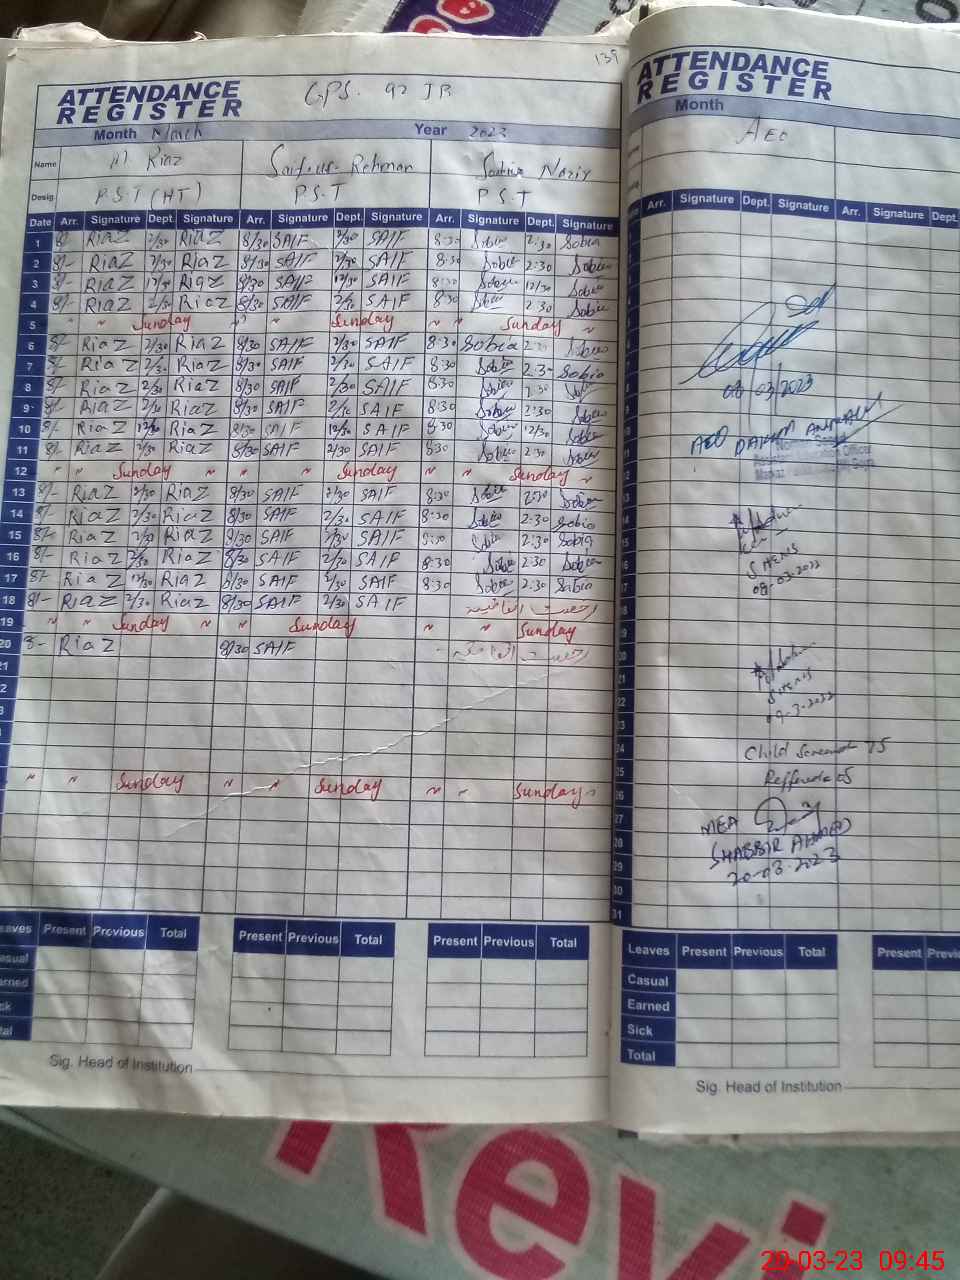 139
ATTENDANCE
REGISTER
GPS. 97 JB
Month March Year 2023
Name M Riaz Saif-ur-Rehman Sobia Nazir
Desig P.S.T (HT) P.S.T P.S.T
Date Arr. Signature Dept. Signature Arr. Signature Dept. Signature Arr. Signature Dept. Signature
1 8/- RiaZ 2/30 RiaZ 8/30 SAIF 2/30 SAIF 8:30 Sobia 2:30 Sobia
2 8/- RiaZ 2/30 RiaZ 8/30 SAIF 2/30 SAIF 8:30 Sobia 2:30 Sobia
3 8/- RiaZ 12/30 RiaZ 8/30 SAIF 12/30 SAIF 8:30 Sobia 12/30 Sobia
4 8/- RiaZ 2/30 RiaZ 8/30 SAIF SAIF 8:30 Sobia 2:30 Sobia
5 " " Sunday " " Sunday " " Sunday "
6 8/- RiaZ 2/30 RiaZ 8/30 SAIF 2/30 SAIF 8:30 Sobia Sobia
7 8/- RiaZ 2/30 RiaZ 8/30 SAIF 2/30 SAIF 8:30 Sobia 2:30 Sobia
8 8/- RiaZ 2/30 RiaZ 8/30 SAIF 2/30 SAIF 8:30 Sobia 2:30 Sobia
9 8/- RiaZ 2/30 RiaZ 8/30 SAIF 2/30 SAIF 8:30 Sobia 2:30 Sobia
10 8/- RiaZ 12/30 RiaZ 8/30 SAIF 12/30 SAIF 8:30 Sobia 12/30 Sobia
11 8/- RiaZ 2/30 RiaZ 8/30 SAIF 2/30 SAIF 8:30 Sobia 2:30 Sobia
12 " " Sunday " " Sunday " " Sunday "
13 8/- RiaZ 2/30 RiaZ 8/30 SAIF 2/30 SAIF 8:30 Sobia 2:30 Sobia
14 8/- RiaZ 2/30 RiaZ 8/30 SAIF 2/30 SAIF 8:30 Sobia 2:30 Sobia
15 8/- RiaZ 2/30 RiaZ 8/30 SAIF 2/30 SAIF 8:30 Sobia 2:30 Sobia
16 8/- RiaZ 2/30 RiaZ 8/30 SAIF 2/30 SAIF 8:30 Sobia 2:30 Sobia
17 8/- RiaZ 12/30 RiaZ 8/30 SAIF SAIF 8:30 Sobia 2:30 Sobia
18 8/- RiaZ 2/30 RiaZ 8/30 SAIF 2/30 SAIF رخصت اتفاقیہ
19 " " Sunday " " Sunday " " Sunday
20 8- RiaZ 8/30 SAIF رخصت اتفاقیہ
21
" " Sunday " " Sunday " " Sunday "
Leaves Present Previous Total Present Previous Total Present Previous Total
Sig. Head of Institution
ATTENDANCE
REGISTER
Month
AEO
Arr. Signature Dept. Signature Arr. Signature Dept.
08/03/2023
AEO
SHENIS
09-03-2022
SHENIS
09-3-2022
21
22
23
24
Child Screened 75
25
Reffered 05
26
27
MEA
28
SHABBIR AHMED
29
20-03-2023
30
31
Leaves Present Previous Total Present
Casual
Earned
Sick
Total
Sig. Head of Institution
Revi
20-03-23 09:45